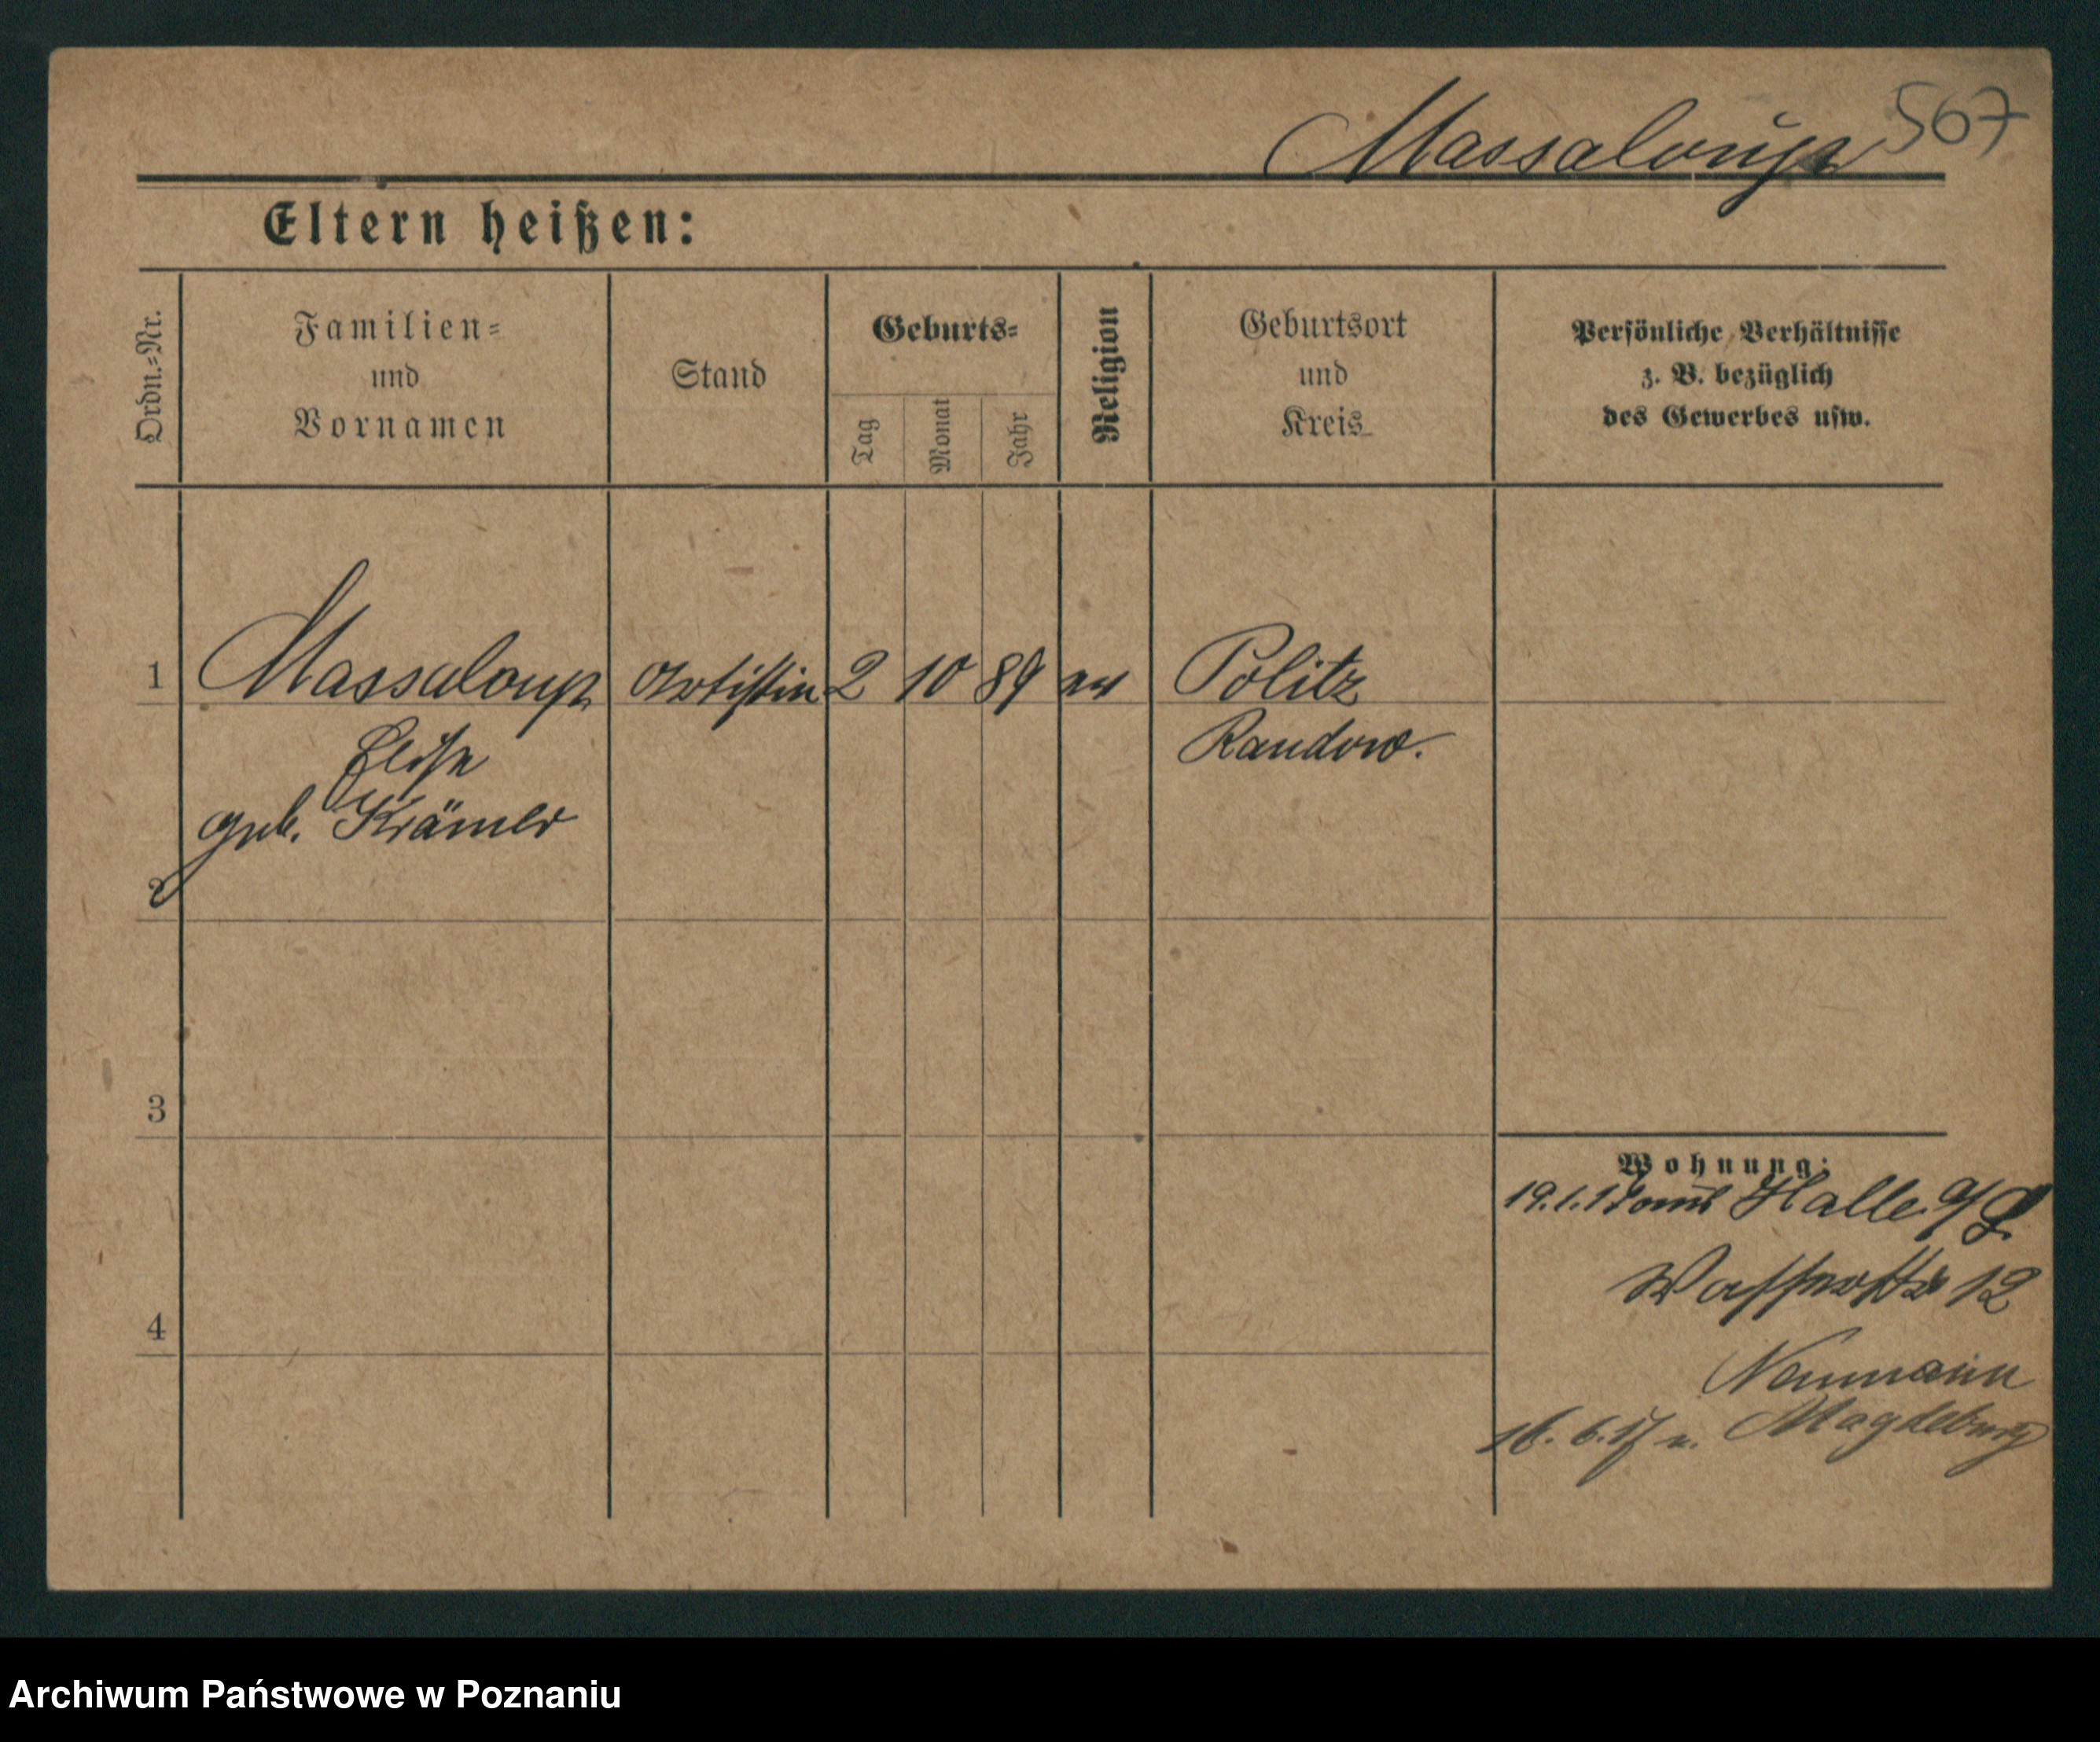 Massaloup 567
Eltern heißen:
Ordn.=Nr.
Familien=
und
Vornamen
Stand
Geburts=
Tag
Monat
Jahr
Religion
Geburtsort
und
Kreis
Persönliche Verhältnisse
z. B. bezüglich
des Gewerbes usw.
1 Massaloup Artistin 2 10 89 ev Politz
Elise Randow.
geb. Krämer
2
3
Wohnung:
19.1.17 aus Halle a/S.
12
4
Neumann
16. 6. 17 n. Magdeburg
Archiwum Państwowe w Poznaniu